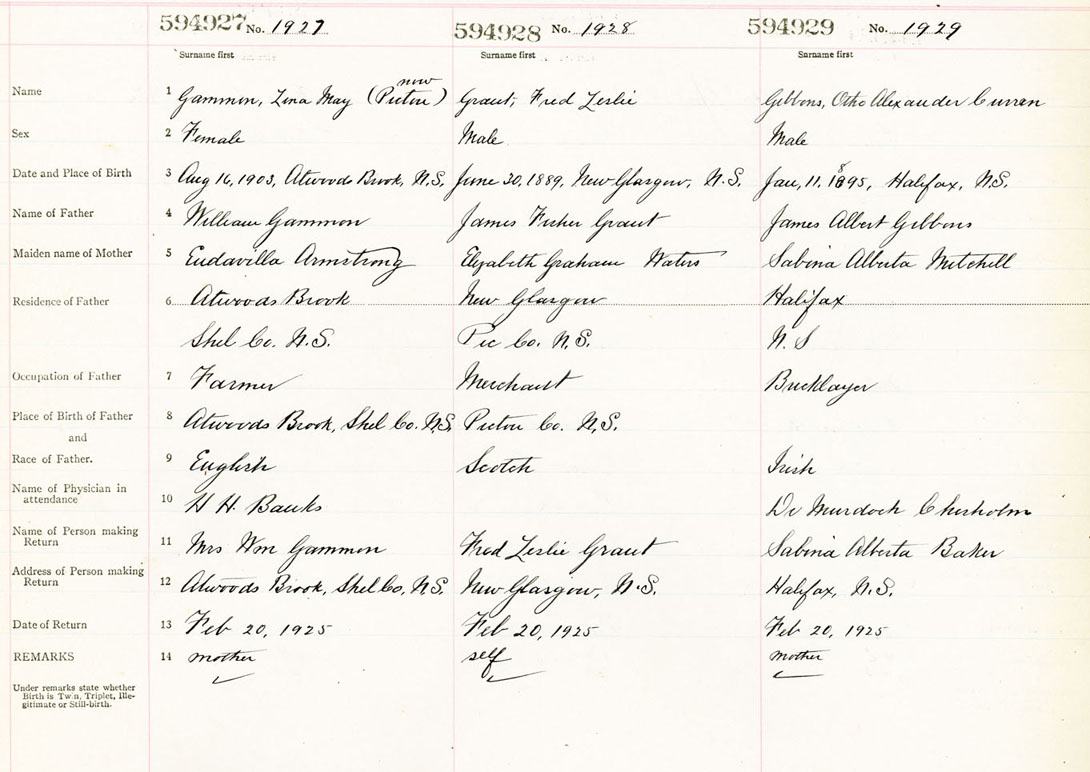 594927 No. 1927 594928 No. 1928 594929 No. 1929
Surname first Surname first Surname first
now
Name 1 Gammon, Zena May (Picton) Grant, Fred Leslie Gibbons, Otho Alexander Curren
Sex 2 Female Male Male
Date and Place of Birth 3 Aug 16, 1903, Atwoods Brook, N.S. June 30, 1889, New Glasgow, N.S. Jan, 11, 1895, Halifax, N.S.
Name of Father 4 William Gammon James Fisher Grant James Albert Gibbons
Maiden name of Mother 5 Eudavilla Armstrong Elizabeth Graham Waters Sabina Alberta Mitchell
Residence of Father 6 Atwoods Brook New Glasgow Halifax
Shel Co. N.S. Pic Co. N.S. N.S
Occupation of Father 7 Farmer Merchant Bricklayer
Place of Birth of Father 8 Atwoods Brook, Shel Co. N.S. Pictou Co. N.S.
and
Race of Father. 9 English Scotch Irish
Name of Physician in
attendance 10 H H. Banks Dr Murdoch Chisholm
Name of Person making
Return 11 Mrs Wm Gammon Fred Leslie Grant Sabina Alberta Baker
Address of Person making
Return 12 Atwoods Brook, Shel Co, N.S. New Glasgow, N.S. Halifax, N.S.
Date of Return 13 Feb 20, 1925 Feb 20, 1925 Feb 20, 1925
REMARKS 14 mother self mother
Under remarks state whether
Birth is Twin, Triplet, Ille-
gitimate or Still-birth.